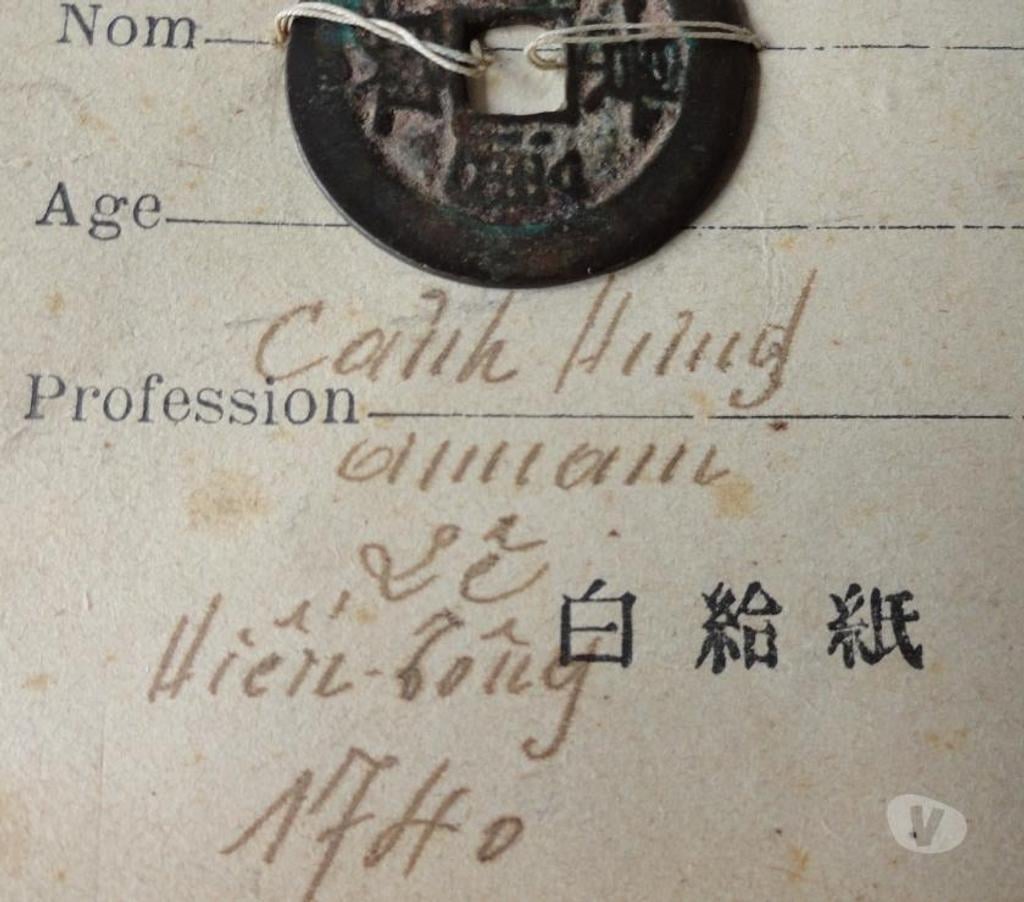 Nom
Age
Cảnh Hưng
Profession
annam
Lê
白 給 紙
Hiến-Tông
1740
V